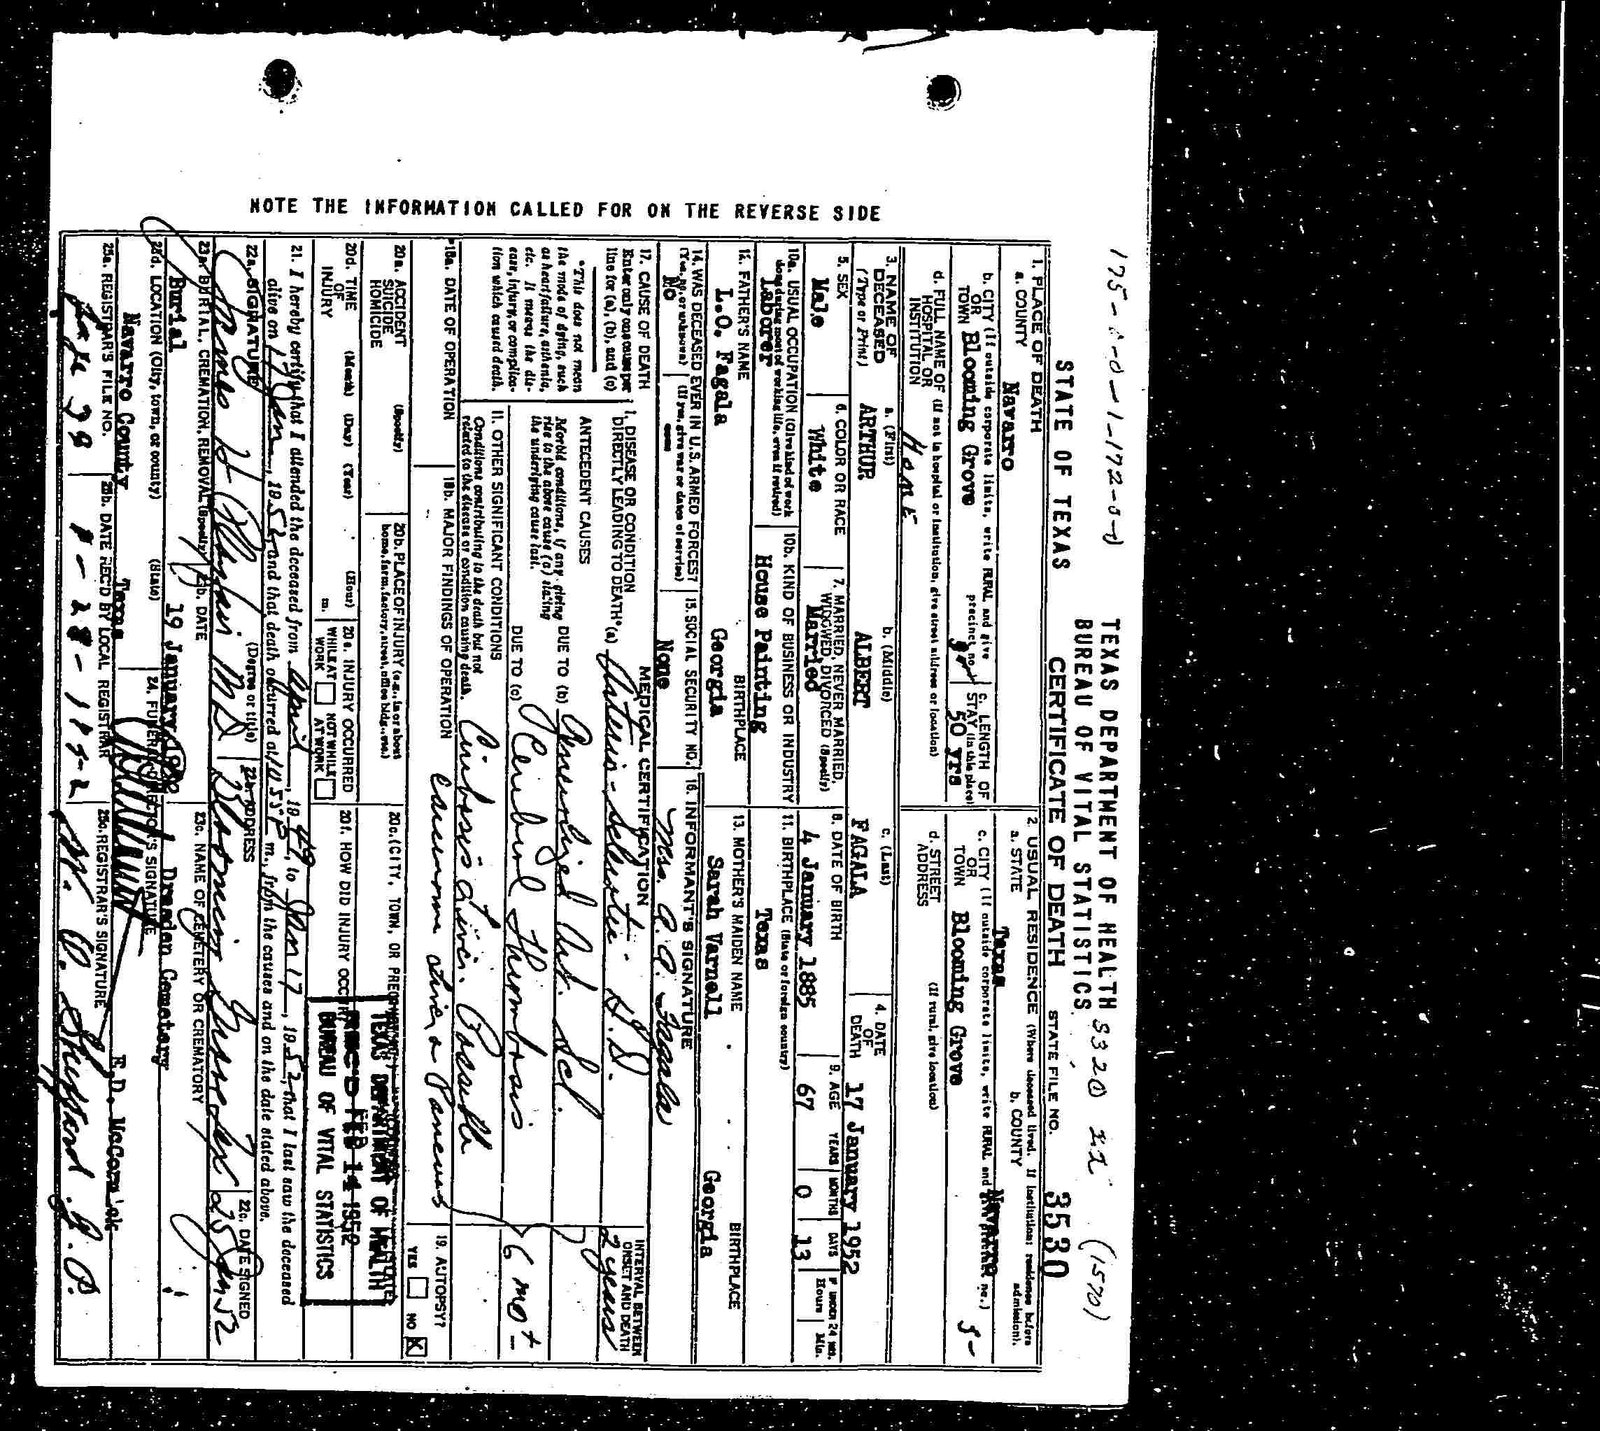 175-0-0-1-172-0-0
TEXAS DEPARTMENT OF HEALTH
BUREAU OF VITAL STATISTICS
STATE OF TEXAS
CERTIFICATE OF DEATH
STATE FILE NO. 3530
(1570)
1. PLACE OF DEATH
a. COUNTY
Navarro
2. USUAL RESIDENCE (Where deceased lived. If institution: residence before admission).
a. STATE
Texas
b. COUNTY
Navarro
b. CITY (If outside corporate limits, write RURAL and give precinct no.)
OR
TOWN Blooming Grove
c. LENGTH OF
STAY (in this place)
50 yrs
c. CITY (If outside corporate limits, write RURAL and
OR
TOWN Blooming Grove
d. FULL NAME OF (If not in hospital or institution, give street address or location)
HOSPITAL OR
INSTITUTION
Home
d. STREET (If rural, give location)
ADDRESS
3. NAME OF
DECEASED
(Type or Print)
a. (First)
ARTHUR
b. (Middle)
ALBERT
c. (Last)
FAGALA
4. DATE
OF
DEATH
17 January 1952
5. SEX
Male
6. COLOR OR RACE
White
7. MARRIED, NEVER MARRIED,
WIDOWED, DIVORCED (Specify)
Married
8. DATE OF BIRTH
4 January 1885
9. AGE YEARS MONTHS DAYS
67 0 13
IF UNDER 24 HRS.
Hours Min.
10a. USUAL OCCUPATION (Give kind of work
done during most of working life, even if retired)
Laborer
10b. KIND OF BUSINESS OR INDUSTRY
House Painting
11. BIRTHPLACE (State or foreign country)
Texas
12. FATHER'S NAME
L.O. Fagala
BIRTHPLACE
Georgia
13. MOTHER'S MAIDEN NAME
Sarah Varnell
BIRTHPLACE
Georgia
14. WAS DECEASED EVER IN U.S. ARMED FORCES?
(Yes, no, or unknown) (If yes, give war or dates of service)
NO
15. SOCIAL SECURITY NO.
None
16. INFORMANT'S SIGNATURE
Mrs. A. A. Fagala
17. CAUSE OF DEATH
Enter only one cause per
line for (a), (b), and (c)
*This does not mean
the mode of dying, such
as heart failure, asthenia,
etc. It means the dis-
ease, injury, or complica-
tion which caused death.
MEDICAL CERTIFICATION
INTERVAL BETWEEN
ONSET AND DEATH
I. DISEASE OR CONDITION
DIRECTLY LEADING TO DEATH* (a) Arterio-sclerotic H.D.
2 years
ANTECEDENT CAUSES
Morbid conditions, if any, giving
rise to the above cause (a) stating
the underlying cause last.
DUE TO (b) Generalized Art. Scl.
DUE TO (c) Cerebral Thrombosis
6 mo+
II. OTHER SIGNIFICANT CONDITIONS
Conditions contributing to the death but not
related to the disease or condition causing death.
Cirrhosis Liver. Possible
Carcinoma Liver or Pancreas
18a. DATE OF OPERATION
18b. MAJOR FINDINGS OF OPERATION
19. AUTOPSY?
YES NO X
20a. ACCIDENT
SUICIDE
HOMICIDE
(Specify)
20b. PLACE OF INJURY (e.g., in or about
home, farm, factory, street, office bldg., etc.)
20c. (CITY, TOWN, OR
20d. TIME
OF
INJURY
(Month) (Day) (Year) (Hour)
m.
20e. INJURY OCCURRED
WHILE AT WORK
NOT WHILE AT WORK
20f. HOW DID INJURY OCCUR?
TEXAS DEPARTMENT OF HEALTH
REC'D FEB 14 1952
BUREAU OF VITAL STATISTICS
21. I hereby certify that I attended the deceased from April, 1949, to Jan 17, 1952, that I last saw the deceased
alive on 17 Jan, 1952, and that death occurred at 10:55 P m., from the causes and on the date stated above.
22a. SIGNATURE
(Degree or title)
22b. ADDRESS
22c. DATE SIGNED
25 Jan 52
23a. BURIAL, CREMATION, REMOVAL (Specify)
Burial
23b. DATE
19 January 1952
23c. NAME OF CEMETERY OR CREMATORY
Dresden Cemetery
23d. LOCATION (City, town, or county) (State)
Navarro County Texas
24. FUNERAL DIRECTOR'S SIGNATURE
E.D. McCormick
25a. REGISTRAR'S FILE NO.
25b. DATE REC'D BY LOCAL REGISTRAR
1-28-1952
25c. REGISTRAR'S SIGNATURE
NOTE THE INFORMATION CALLED FOR ON THE REVERSE SIDE